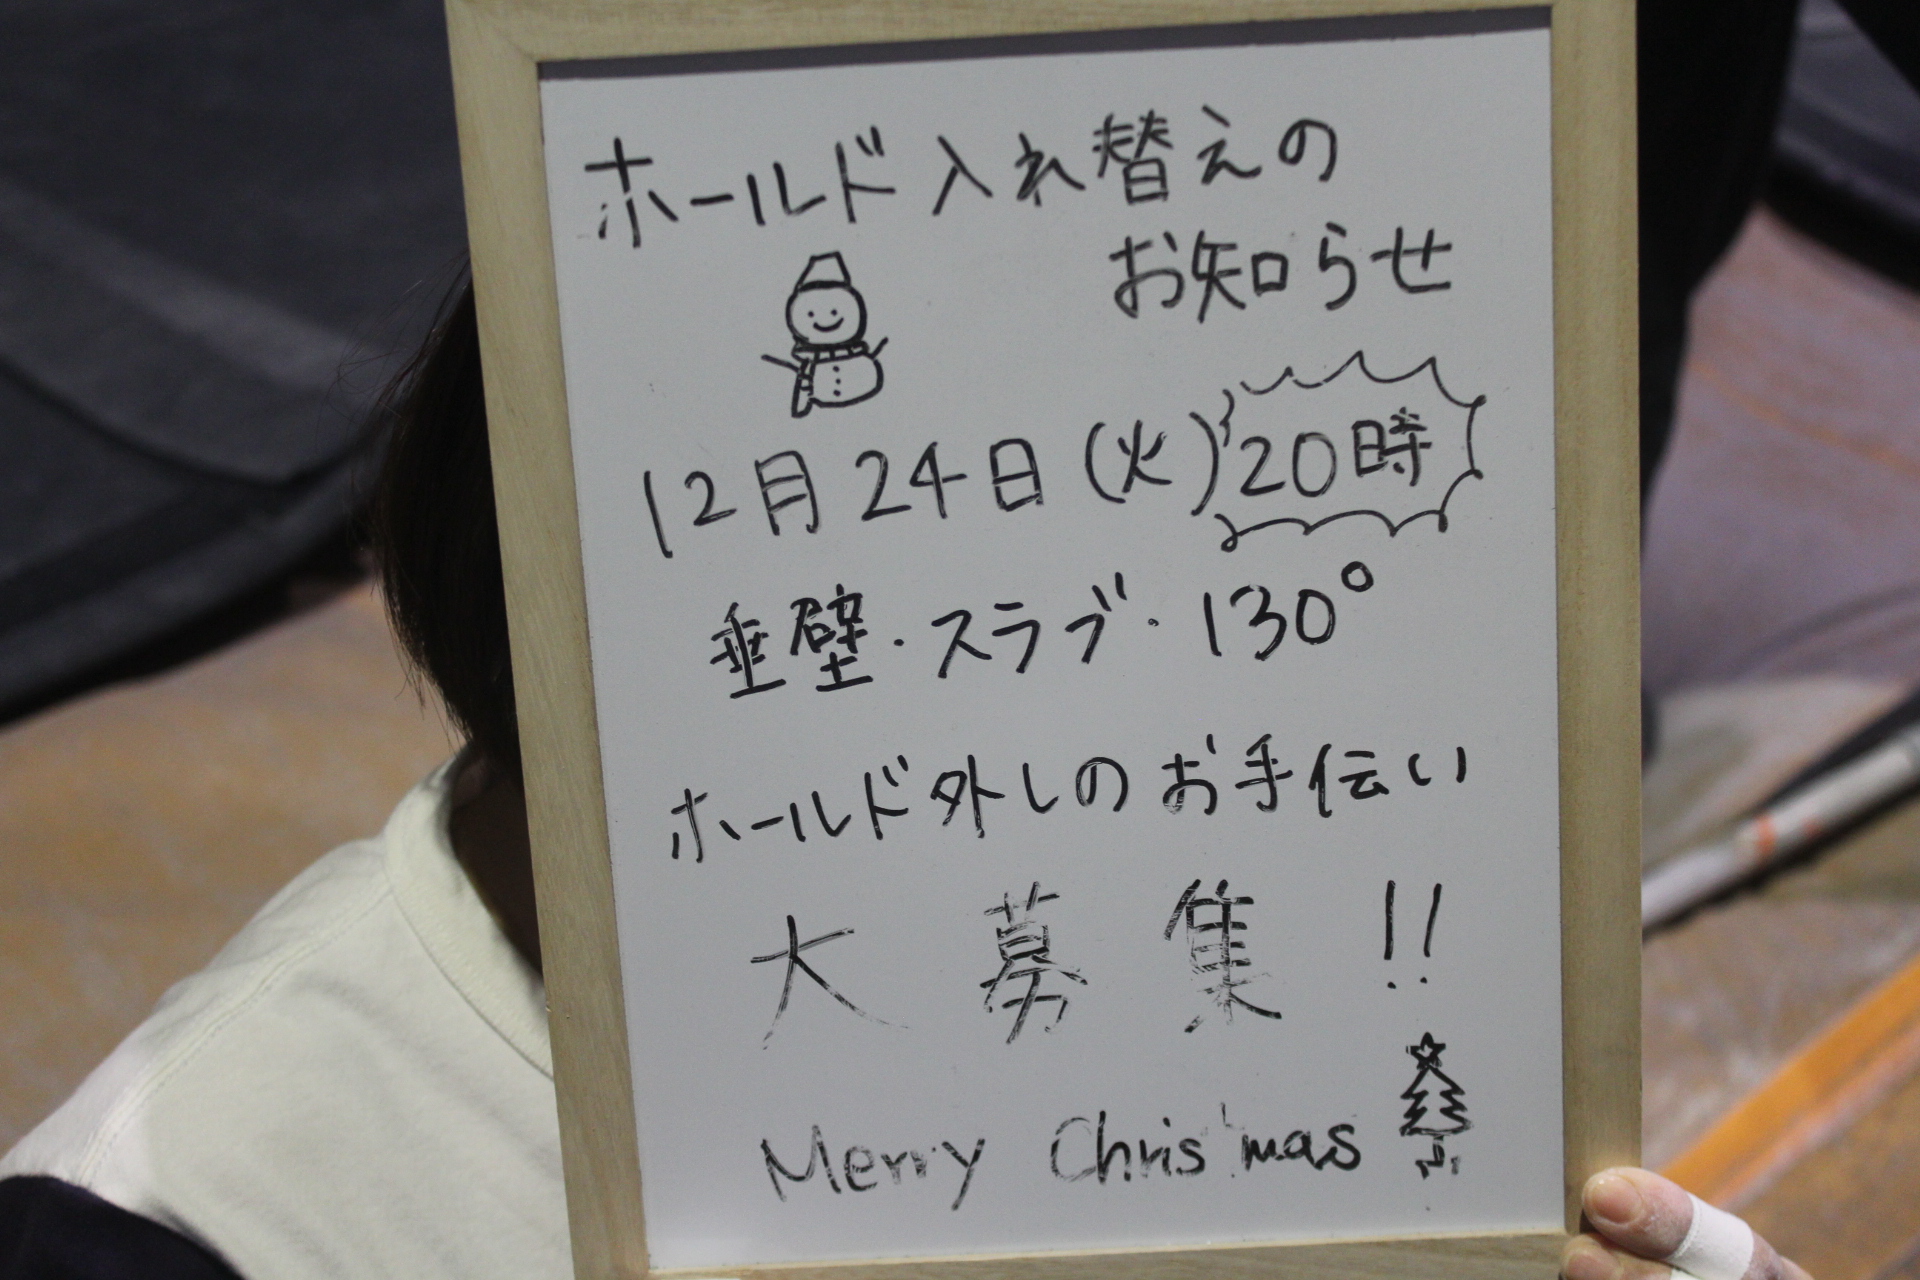 ホールド入れ替えの
お知らせ
12月24日(火)20時
垂壁・スラブ・130°
ホールド外しのお手伝い
大募集!!
Merry Christmas